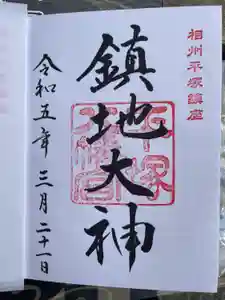 相州平塚鎮座
鎮地大神
平塚八幡宮
令和五年三月二十一日